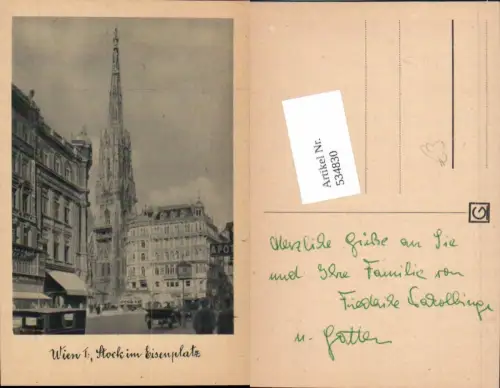 APO
Wien I., Stock im Eisenplatz
Artikel Nr.
534830
G
Herzliche Grüße an Sie
und Ihre Familie von
Friederike
u. Gatten